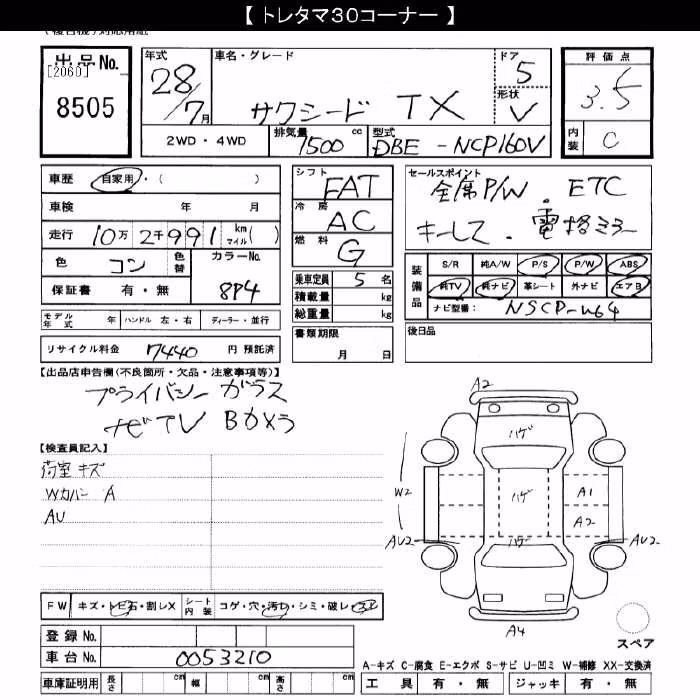 【 トレタマ30コーナー 】
出品No.
[2060]
8505
年式
28/7月
車名・グレード
サクシード TX
ドア
5
形状
V
評価点
3.5
内装
C
2WD・4WD
排気量
1500 cc
型式
DBE-NCP160V
車歴
自家用・( )
車検 年 月
走行 10万 2千991 km マイル( )
色 コン 色替
カラーNo.
8P4
保証書 有・無
シフト
FAT
冷房
AC
燃料
G
乗車定員 5 名
積載量 kg
総重量 kg
書類期限
月 日
セールスポイント
全席P/W . ETC
キーレス . 電格ミラー
装備品
S/R 純A/W P/S P/W ABS
純TV 純ナビ 革シート 外ナビ エアB
ナビ型番: NSCP-W64
後日品
モデル年式 年 ハンドル 左・右 ディーラー・並行
リサイクル料金 7440 円 預託済
【出品店申告欄(不良箇所・欠品・注意事項等)】
プライバシーガラス
ナビTV Bカメラ
【検査員記入】
荷室キズ
Wカバー A
AU
FW キズ・トビ石・割レX シート内装 コゲ・穴・汚レ・シミ・破レ・スレ
登録No.
車台No. 0053210
車庫証明用 長さ cm 幅 cm 高さ cm
A2
ハゲ
W2
ハゲ
A1
A2
AU2
AU2
ハゲ
A4
スペア
A-キズ C-腐食 E-エクボ S-サビ U-凹ミ W-補修 XX-交換済
工具 有・無 ジャッキ 有・無